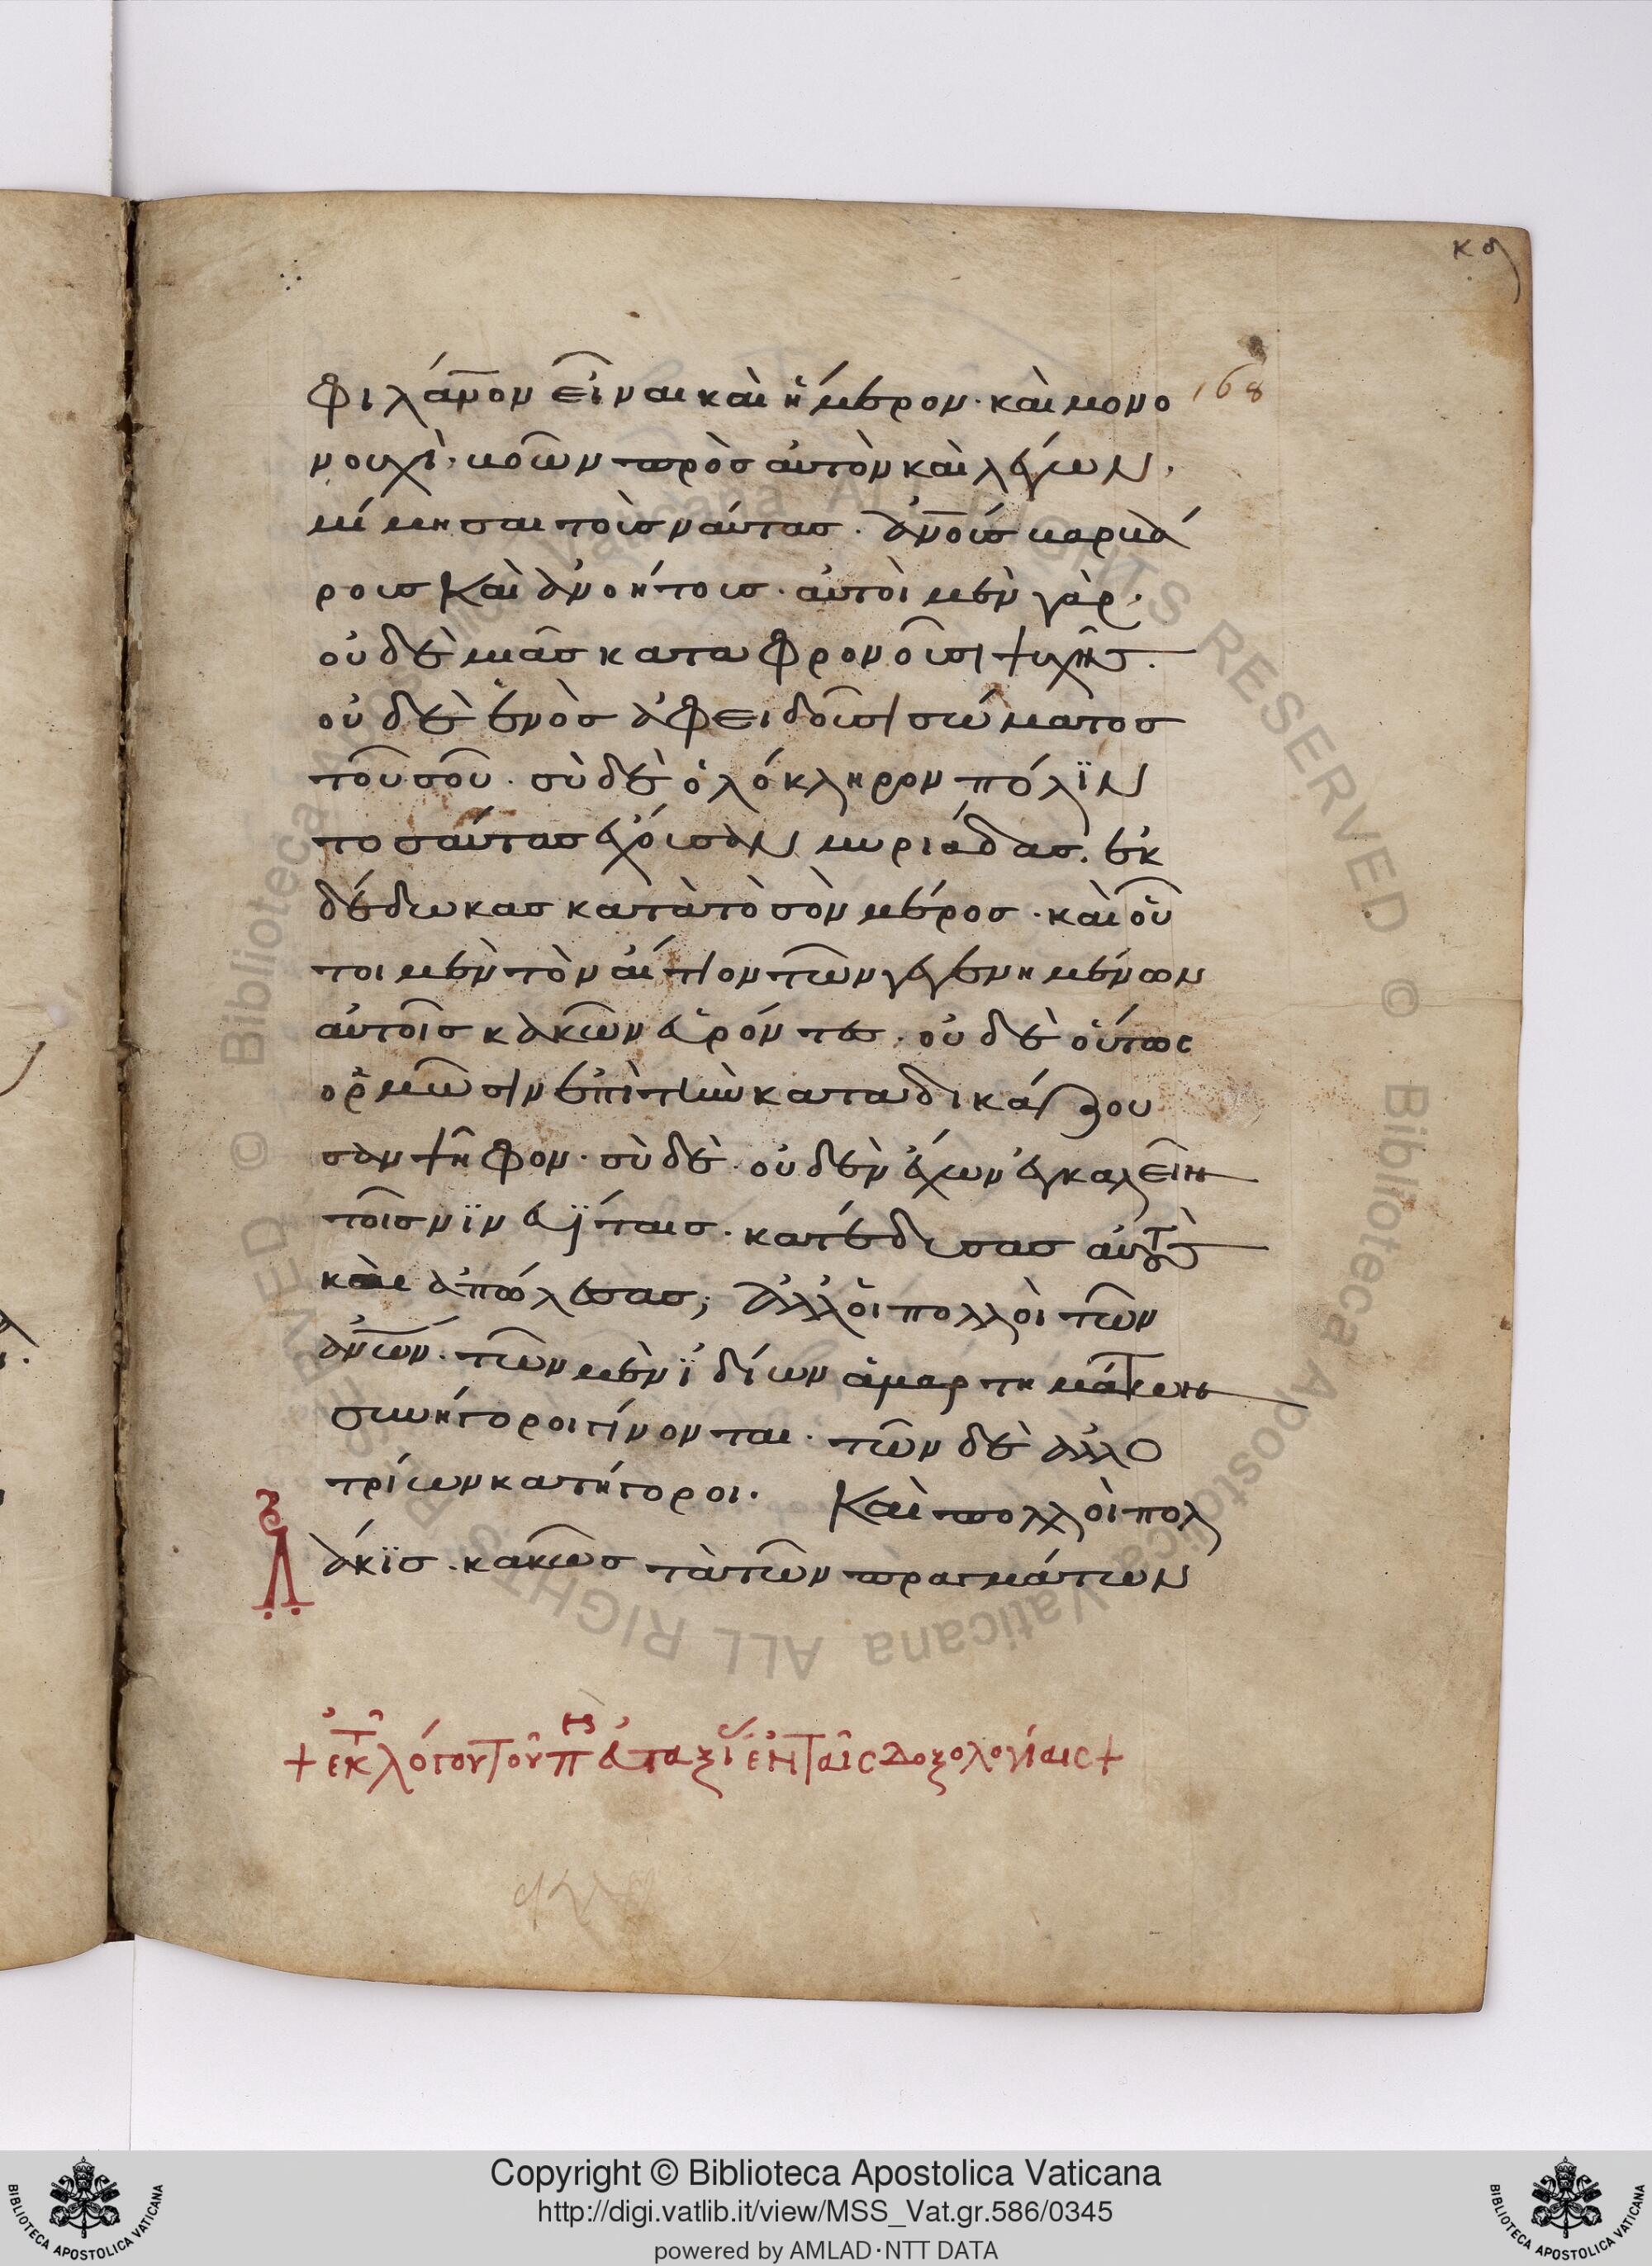 κθ
168
φιλάνον εἶναι καὶ ἥμερον· καὶ μονο
νουχὶ· βοῶν πρὸς αὐτὸν καὶ λέγων,
μίμησαι τοὺς ναύτας· ἀνοὺς βαρβά
ρους Καὶ ἀνοήτους· αὐτοὶ μὲν γὰρ,
οὐδὲ μιᾶς καταφρονοῦσι ψυχῆς.
οὐδὲ ἑνὸς ἀφειδοῦσι σώματος
τοῦ σοῦ· σὺ δὲ ὁλόκληρον πόλϊν
τοσαύτας ἔχουσαν μυριάδας, ἐκ
δέδωκας κατὰ τὸ σὸν μέρος· καὶ οὗ
τοι μὲν τὸν αἴτιον τῶν γεγενημένων
αὐτοῖς κακῶν εὑρόντες, οὐδὲ οὕτως
ὁρμῶσιν ἐπὶ τὴν καταδικάζου
σαν ψῆφον· σὺ δὲ· οὐδὲν ἔχων ἐγκαλεῖν
τοῖς νϊνευΐταις· κατέδησας αὐτοὺς
καὶ ἀπώλεσας; Ἀλλ' οἱ πολλοὶ τῶν
ἀνων· τῶν μὲν ϊδίων ἁμαρτημάτων
συνήγοροι γίνονται· τῶν δὲ ἀλλο
τρίων κατήγοροι. Καὶ πολλοὶ πολ
Λάκϊς· κακῶς τὰ τῶν πραγμάτων
+ ἐκ λόγου τοῦ π ἐν ταῖς δοξολογίαις +
Copyright © Biblioteca Apostolica Vaticana
http://digi.vatlib.it/view/MSS_Vat.gr.586/0345
powered by AMLAD·NTT DATA
BIBLIOTECA APOSTOLICA VATICANA
BIBLIOTECA APOSTOLICA VATICANA